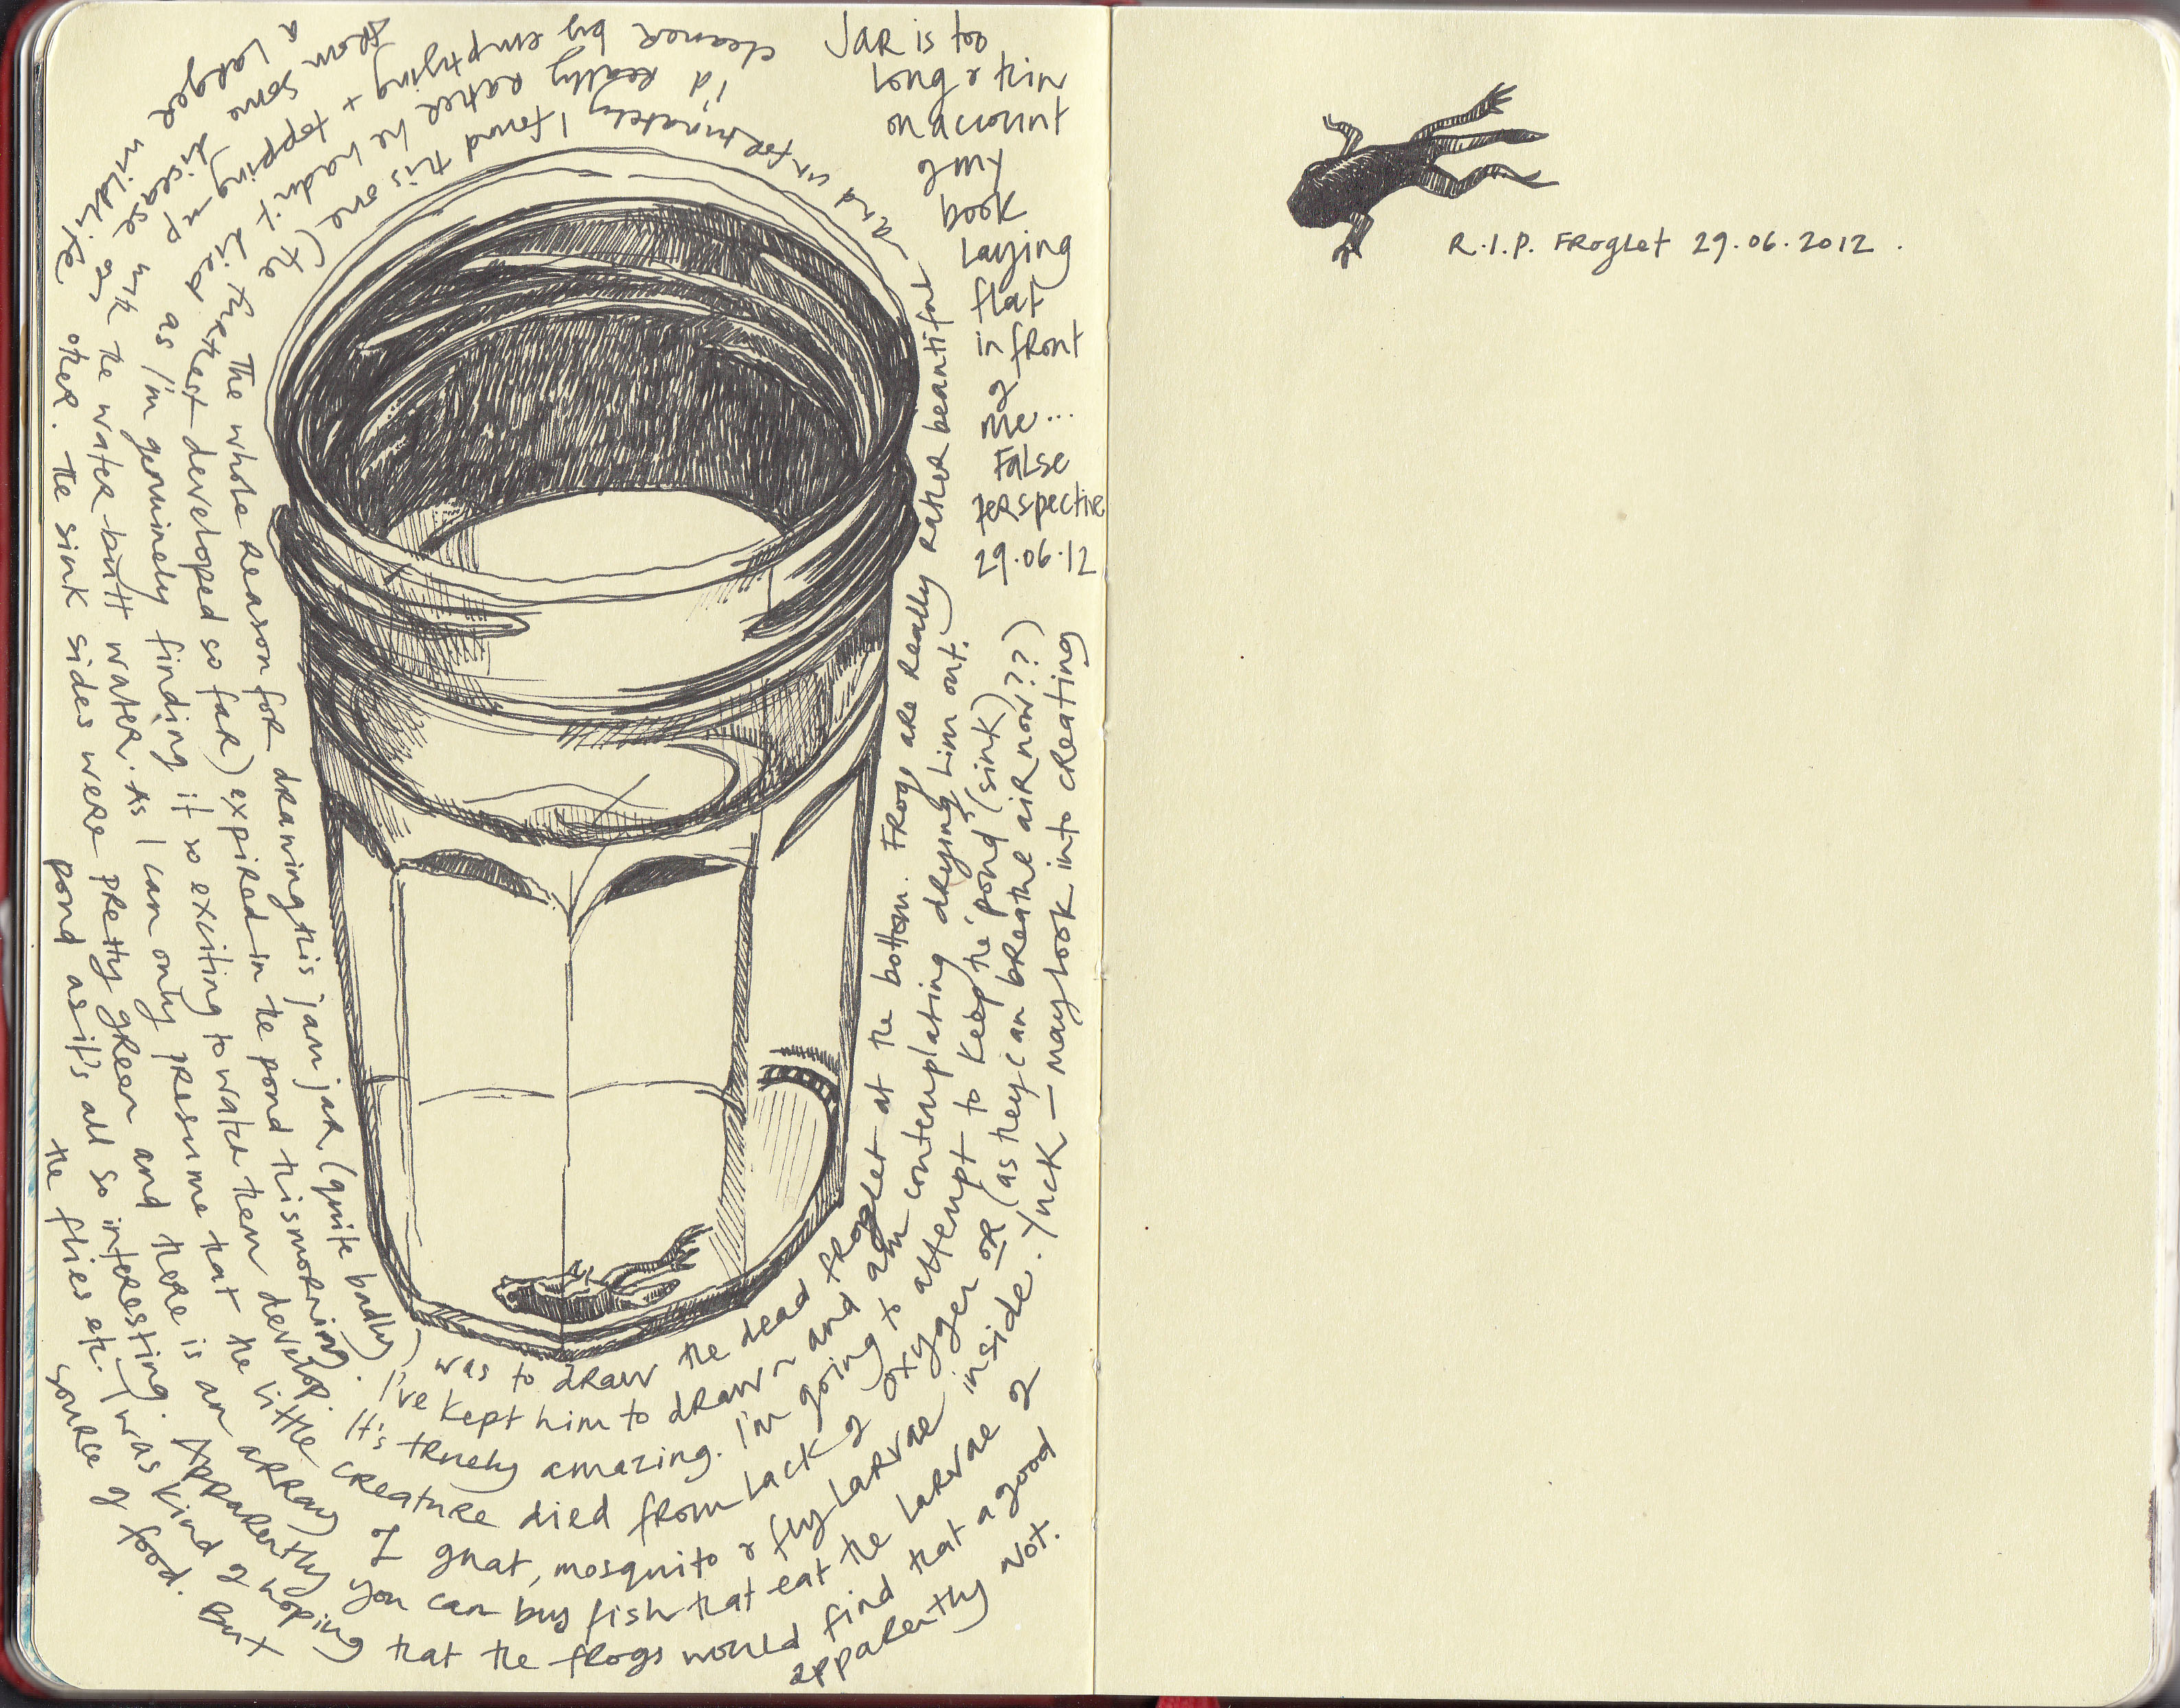 Jar is too
long & thin
on account
of my
book
laying
flat
in front
of
me...
False
perspective
29.06.12
The whole reason for drawing this jam jar (quite badly) was to draw the dead froglet at the bottom. Frogs are really rather beautiful and unfortunately I found this one (the
furthest developed so far) expired in the pond this morning. I've kept him to drawn and am contemplating drying him out. I'd really rather he hadn't died
as I'm genuinely finding it so exciting to watch them develop. It's truely amazing. I'm going to attempt to keep the 'pond' (sink) cleaner by emptying + topping up
with the water-butt water. As I can only presume that the little creature died from lack of oxygen or (as they can breathe air now??) from some disease or
other. The sink sides were pretty green and there is an array of gnat, mosquito & fly larvae inside. Yuck – may look into creating a larger wildlife
pond as it's all so interesting. Apparently you can buy fish that eat the larvae of
the flies etc. I was kind of hoping that the frogs would find that a good
source of food. But apparently not.
R.I.P. Froglet 29.06.2012.